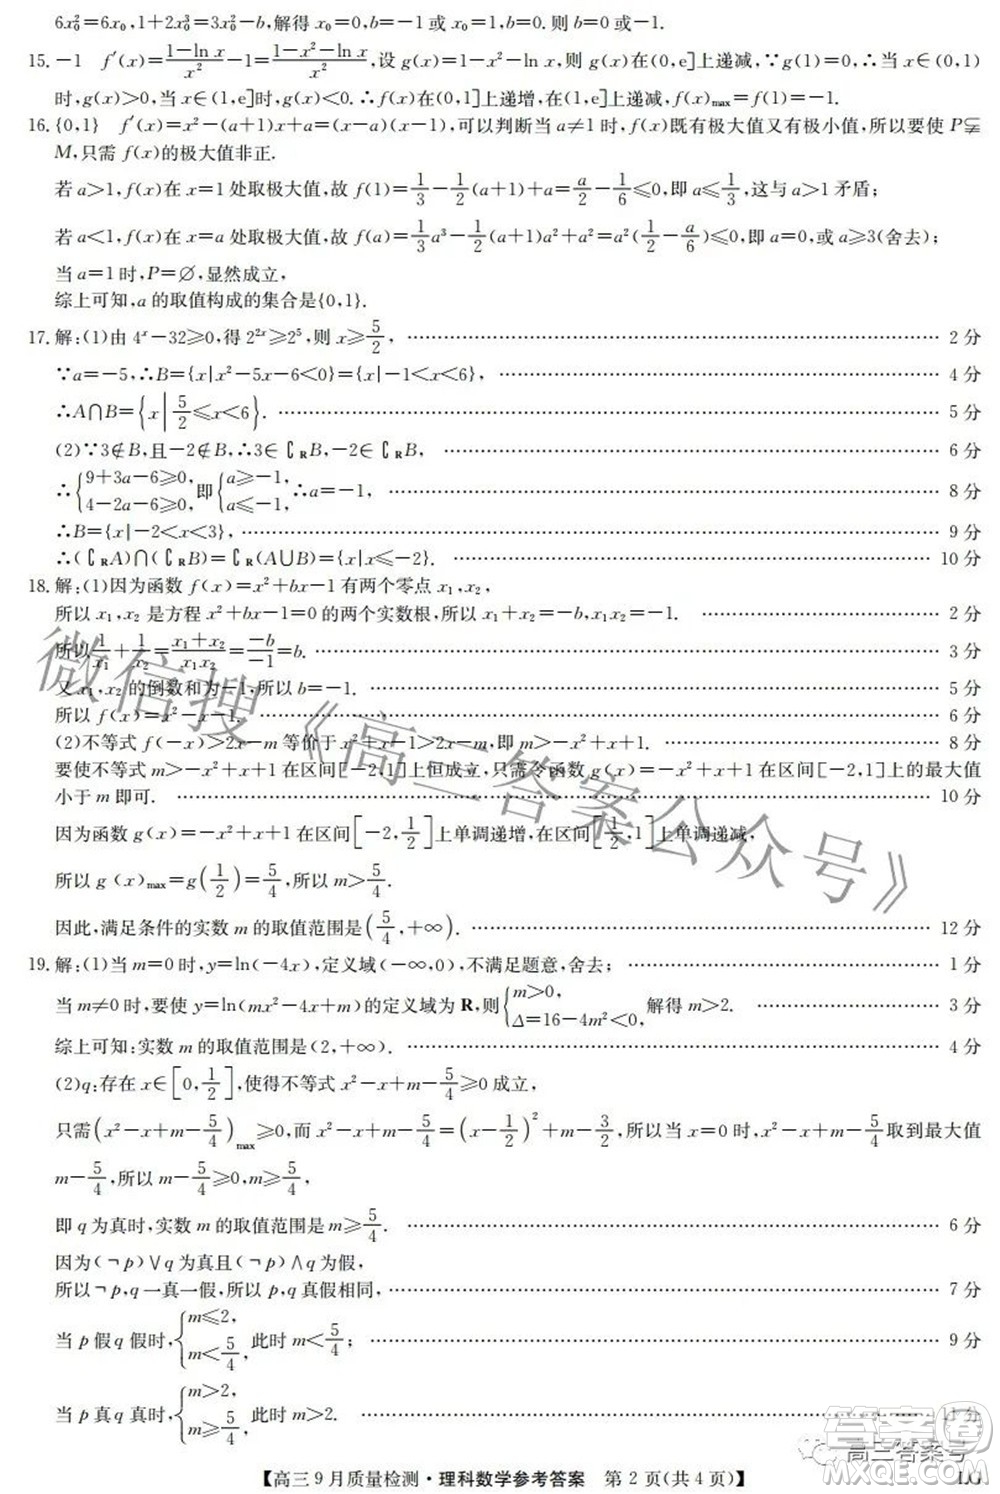 6x₀²=6x₀,1+2x₀³=3x₀²-b,解得 x₀=0,b=-1 或 x₀=1,b=0.则 b=0 或-1.
15.-1　f′(x)=\frac{1-ln x}{x²}-1=\frac{1-x²-ln x}{x²},设 g(x)=1-x²-ln x,则 g(x)在(0,e]上递减,∵g(1)=0,∴当 x∈(0,1)
时,g(x)>0,当 x∈(1,e]时,g(x)<0.∴f(x)在(0,1]上递增,在(1,e]上递减,f(x)max=f(1)=-1.
16.{0,1}　f′(x)=x²-(a+1)x+a=(x-a)(x-1),可以判断当 a≠1 时,f(x)既有极大值又有极小值,所以要使 P⫋
M,只需 f(x)的极大值非正.
若 a>1,f(x)在 x=1 处取极大值,故 f(1)=\frac{1}{3}-\frac{1}{2}(a+1)+a=\frac{a}{2}-\frac{1}{6}≤0,即 a≤\frac{1}{3},这与 a>1 矛盾;
若 a<1,f(x)在 x=a 处取极大值,故 f(a)=\frac{1}{3}a³-\frac{1}{2}(a+1)a²+a²=a²(\frac{1}{2}-\frac{a}{6})≤0,即 a=0,或 a≥3(舍去);
当 a=1 时,P=∅,显然成立,
综上可知,a 的取值构成的集合是{0,1}.
17.解:(1)由 4ˣ-32≥0,得 2²ˣ≥2⁵,则 x≥\frac{5}{2}, …… 2 分
∵a=-5,∴B={x|x²-5x-6<0}={x|-1<x<6}, …… 4 分
∴A∩B={x|\frac{5}{2}≤x<6}. …… 5 分
(2)∵3∉B,且-2∉B,∴3∈∁RB,-2∈∁RB, …… 6 分
∴{9+3a-6≥0, 4-2a-6≥0, 即{a≥-1, a≤-1, ∴a=-1, …… 8 分
∴B={x|-2<x<3}, …… 9 分
∴(∁RA)∩(∁RB)=∁R(A∪B)={x|x≤-2}. …… 10 分
18.解:(1)因为函数 f(x)=x²+bx-1 有两个零点 x₁,x₂,
所以 x₁,x₂ 是方程 x²+bx-1=0 的两个实数根,所以 x₁+x₂=-b,x₁x₂=-1. …… 2 分
所以\frac{1}{x₁}+\frac{1}{x₂}=\frac{x₁+x₂}{x₁x₂}=\frac{-b}{-1}=b. …… 3 分
又 x₁,x₂ 的倒数和为-1,所以 b=-1. …… 5 分
所以 f(x)=x²-x-1. …… 6 分
(2)不等式 f(-x)>2x-m 等价于 x²+x-1>2x-m,即 m>-x²+x+1. …… 8 分
要使不等式 m>-x²+x+1 在区间[-2,1]上恒成立,只需令函数 g(x)=-x²+x+1 在区间[-2,1]上的最大值
小于 m 即可. …… 10 分
因为函数 g(x)=-x²+x+1 在区间[-2,\frac{1}{2}]上单调递增,在区间[\frac{1}{2},1]上单调递减,
所以 g(x)max=g(\frac{1}{2})=\frac{5}{4},所以 m>\frac{5}{4}.
因此,满足条件的实数 m 的取值范围是(\frac{5}{4},+∞). …… 12 分
19.解:(1)当 m=0 时,y=ln(-4x),定义域(-∞,0),不满足题意,舍去; …… 1 分
当 m≠0 时,要使 y=ln(mx²-4x+m)的定义域为 R,则{m>0, Δ=16-4m²<0, 解得 m>2. …… 3 分
综上可知:实数 m 的取值范围是(2,+∞). …… 4 分
(2)q:存在 x∈[0,\frac{1}{2}],使得不等式 x²-x+m-\frac{5}{4}≥0 成立,
只需(x²-x+m-\frac{5}{4})max≥0,而 x²-x+m-\frac{5}{4}=(x-\frac{1}{2})²+m-\frac{3}{2},所以当 x=0 时,x²-x+m-\frac{5}{4}取到最大值
m-\frac{5}{4},所以 m-\frac{5}{4}≥0,m≥\frac{5}{4},
即 q 为真时,实数 m 的取值范围是 m≥\frac{5}{4}. …… 6 分
因为(¬p)∨q 为真且(¬p)∧q 为假,
所以¬p,q 一真一假,所以 p,q 真假相同, …… 7 分
当 p 假 q 假时,{m≤2, m<\frac{5}{4}, 此时 m<\frac{5}{4}; …… 9 分
当 p 真 q 真时,{m>2, m≥\frac{5}{4}, 此时 m>2. …… 11 分
【高三 9 月质量检测·理科数学参考答案　第 2 页(共 4 页)】
LG
微信搜《高三答案公众号》
高三答案号
答案圈
MXQE.COM